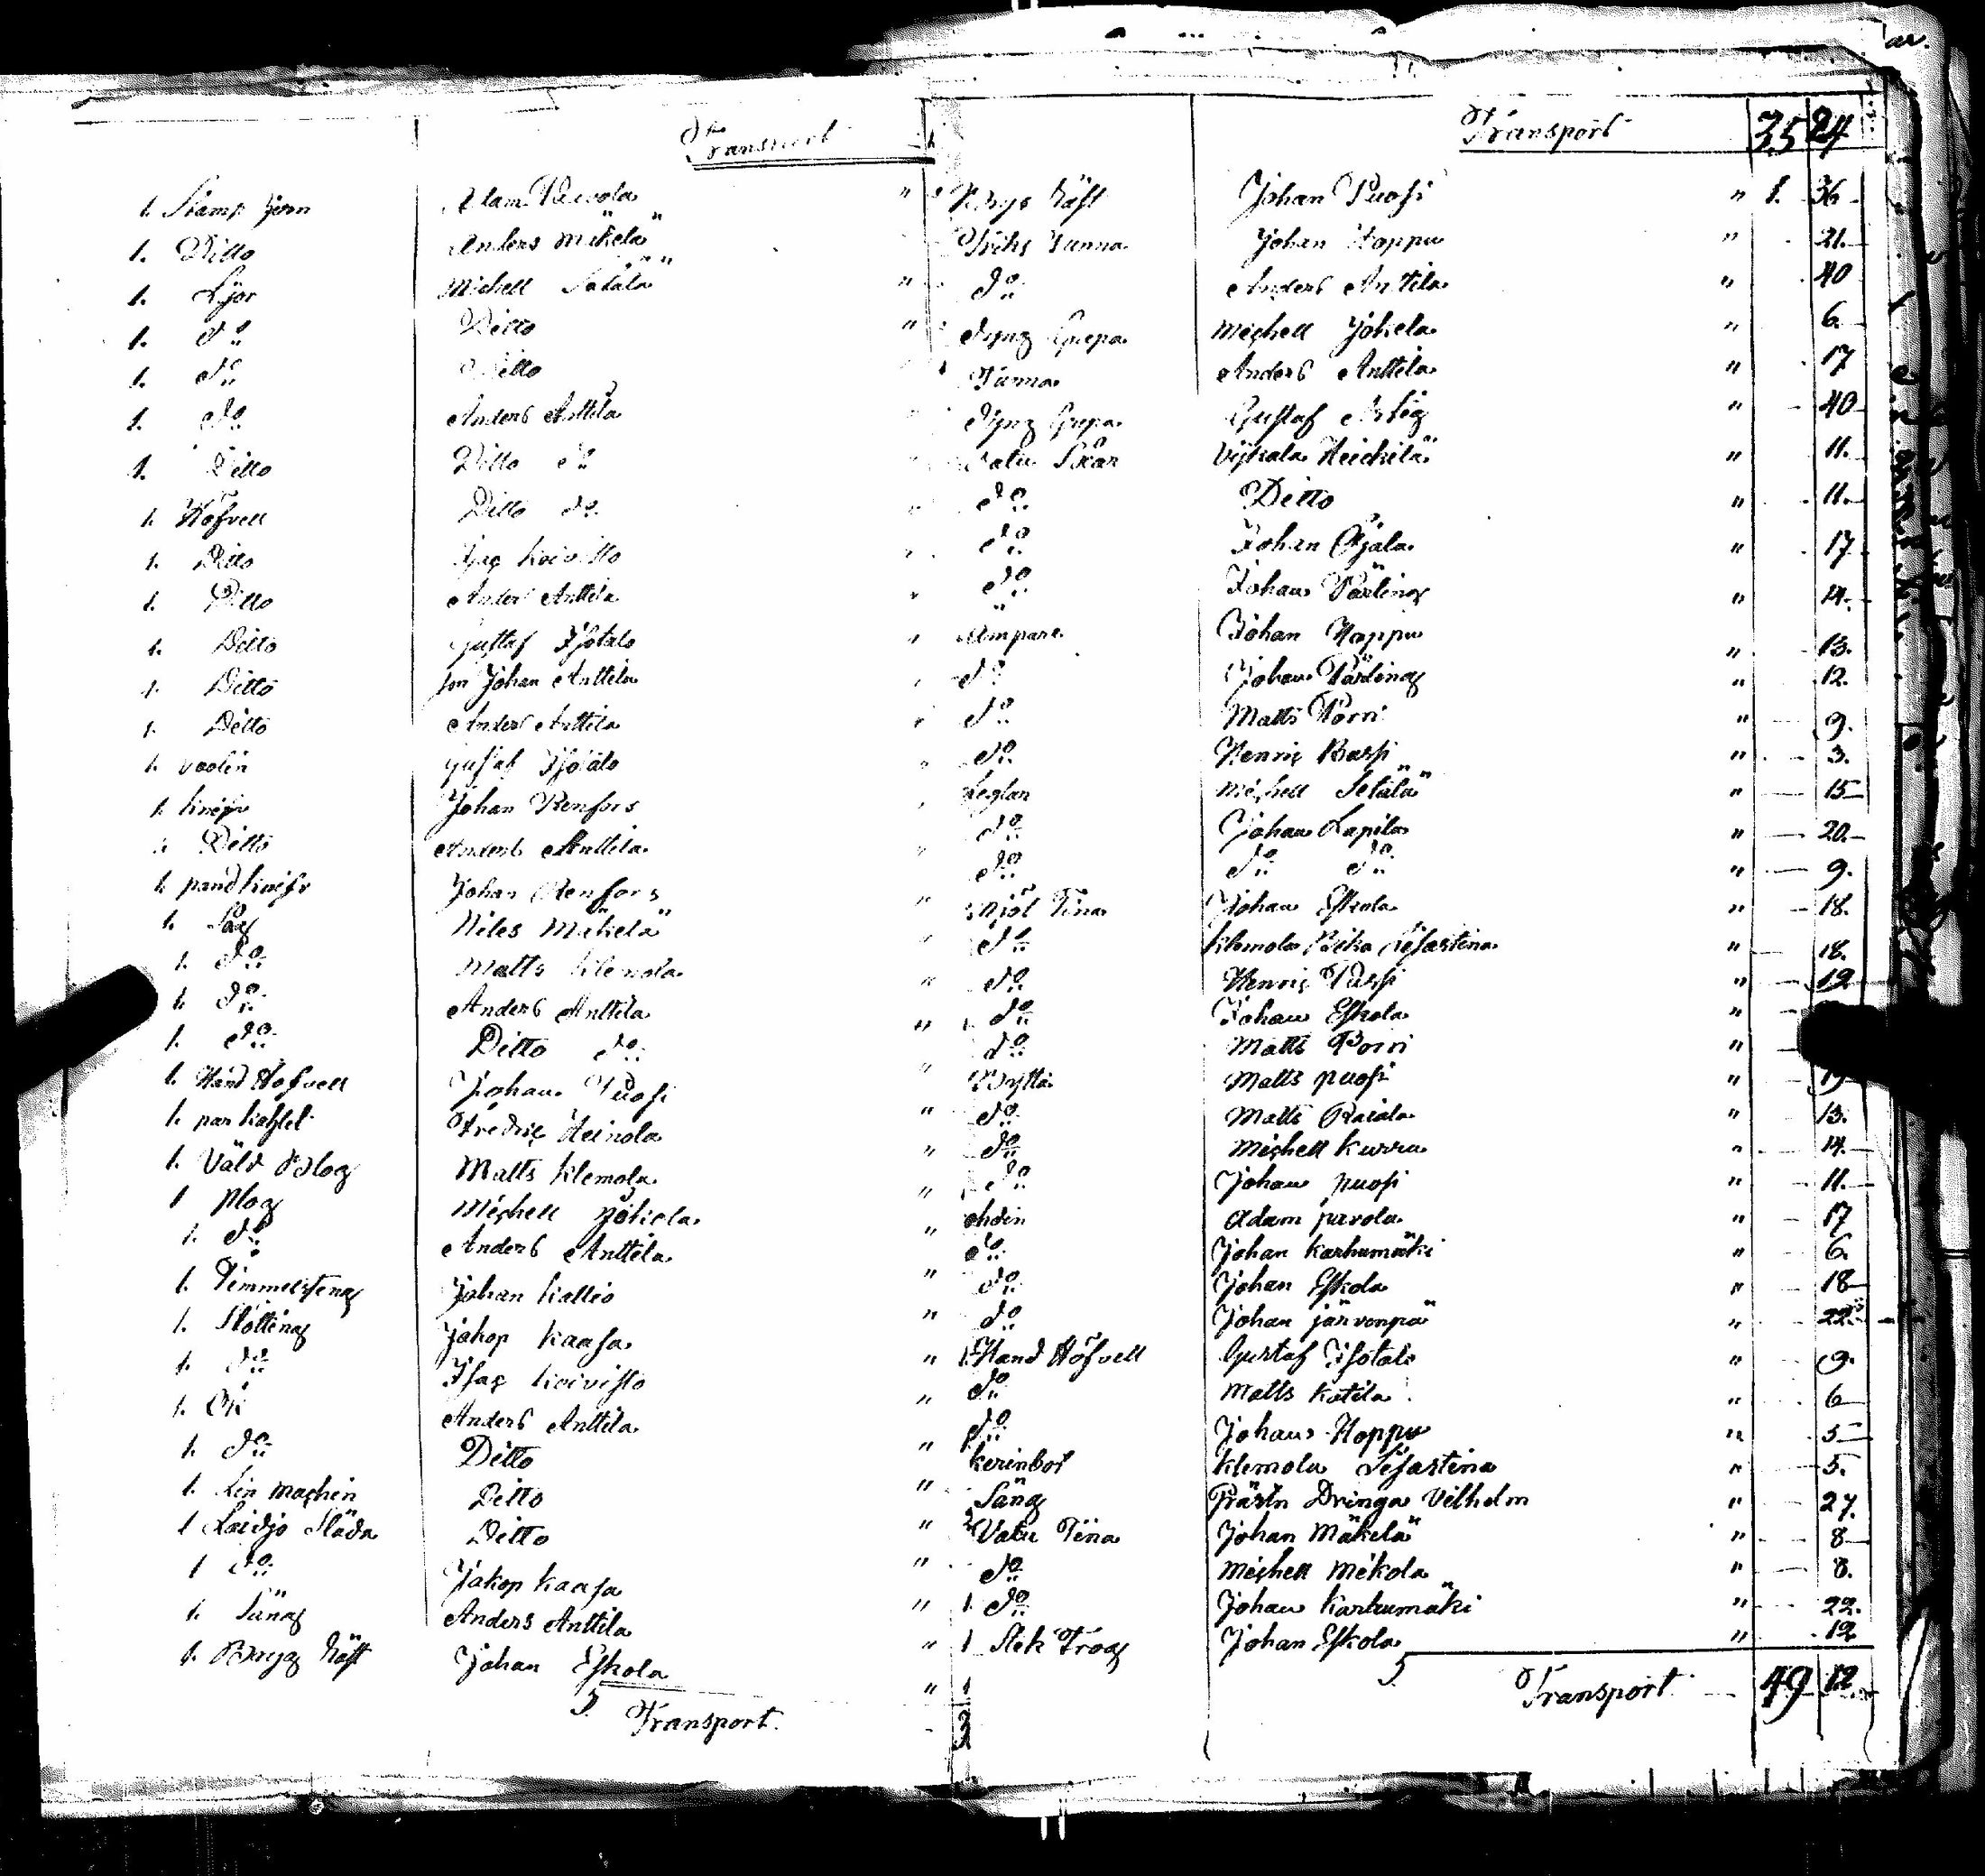 Transport
1. Stamp jern Adam Pervola "
1. Ditto Anders Mäkelä
1. Lÿor Michell Setälä "
1. do Ditto "
1. do Ditto
1. do Anders Anttila
1. Ditto Ditto do
1. Höfvell Ditto do
1. Ditto Isaç Koivisto
1. Ditto Anders Anttila
1. Ditto Gustaf Isotalo "
1. Ditto Johan Anttila
1. Ditto Anders Anttila
1. voolin Gustaf Isotalo
1. knifv Johan Renfors
1. Ditto Anders Anttila
1. pand knifv Johan Renfors "
1. Såg Niles Mäkelä "
1. do Matts Klemola "
1. do Anders Anttila "
1. do Ditto do "
1. Hand Höfvell Johan Puosi "
1. par Fredriç Heinola "
1. Väld Plog Matts Klemola "
1 plog Michell Jokela "
1. do Anders Anttila "
1. Johan Kallio "
1. Slötting Jakop Kaasa "
1. do Isaç Koivisto "
1. Anders Anttila "
1. do Ditto "
1. Lin maçhin Ditto "
1 Släda Ditto "
1 do Jakop Kaasa "
1. Säng Anders Anttila "
1. Brÿg käft Johan Eskola "
Transport
Transport 35 24
Brÿg käft Johan Puosi " 1. 36
Tunna Johan Hoppu " 21.
do Anders Antila " 40
Dÿng Grepa Michell Jokela " 6
Tunna Anders Anttila " 17
Dÿng Grepa Gustaf " 40
Vatu Skar Heickilä " 11.
do Ditto " 11.
do Johan Ojala " 17
do Johan Pärling " 14.
Ämpare Johan Hoppu " 13.
do Johan Pärling " 12.
do Matts Porri " 9.
do Henriç Passi " 3.
Leglar Michell Setälä " 15
do Johan Lapila " 20.
do do do " 9.
Mjöl Tina Johan Eskola " 18.
do Klemola " 18.
do Henriç Passi " 19
do Johan Eskola "
do Matts Porri "
Bÿtta Matts puosi " 19
do Matts Raiala " 13.
do Michell Kurra " 14.
do Johan puosi " 11.
Adam pervola " 17
do Johan Karhumäki " 6.
do Johan Eskola " 18
do Johan järvenpä " 22.
1. Hand Höfvell Gustaf Isotalo " 9.
do Matts Katila " 6
do Johan Hoppu " 5
Klemola " 5.
Säng Dringa Vilhelm " 27.
Vatu Tina Johan Mäkelä " 8
do Michell Mikola " 8.
1. do Johan Karhumäki " 22.
1 Stek Trog Johan Eskola " 12
Transport 49 12